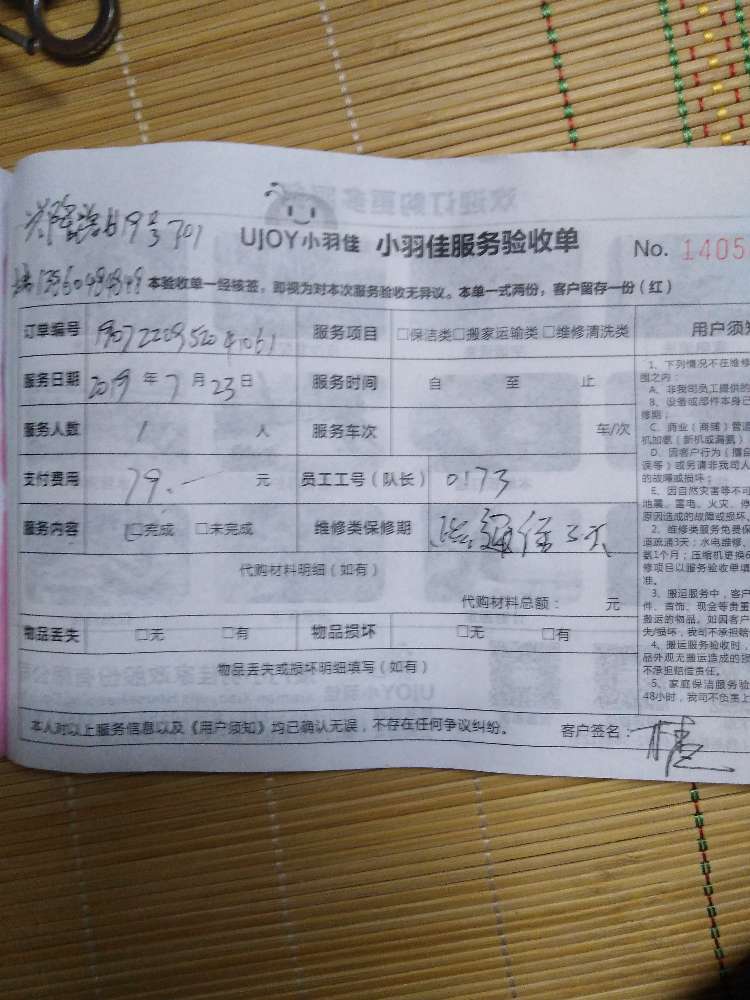 19号701
UJOY小羽佳 小羽佳服务验收单 No. 1405
本验收单一经核签，即视为对本次服务验收无异议。本单一式两份，客户留存一份（红）
订单编号 服务项目 □保洁类□搬家运输类□维修清洗类 用户须知
服务日期 2019 年 7 月 23 日 服务时间 自 至 止
服务人数 1 人 服务车次 车/次
支付费用 79.— 元 员工工号（队长） 0173
服务内容 □完成 □未完成 维修类保修期 3天
代购材料明细（如有）
代购材料总额： 元
物品丢失 □无 □有 物品损坏 □无 □有
物品丢失或损坏明细填写（如有）
本人对以上服务信息以及《用户须知》均已确认无误，不存在任何争议纠纷。 客户签名：
1、下列情况不在维修
围之内：
A、非我司员工提供的
B、设备或部件本身已
修期；
C、商业（商铺）管道
机加氨（新机或漏氨）
D、因客户行为（擅自
误等）或另请非我司人
的故障或损坏；
E、因自然灾害等不可
地震、雷电、火灾、停
原因造成的故障或损坏。
2、维修类服务免费保
道疏通3天；水电维修、
氨1个月；压缩机更换6
修项目以服务验收单填
准。
3、搬运服务中，客户
件、首饰、现金等贵重
搬运的物品。如因客户
失/损坏，我司不承担赔
4、搬运服务验收时，
品外观无搬运造成的损
不承担赔偿责任。
5、家庭保洁服务验
48小时，我司不负害上